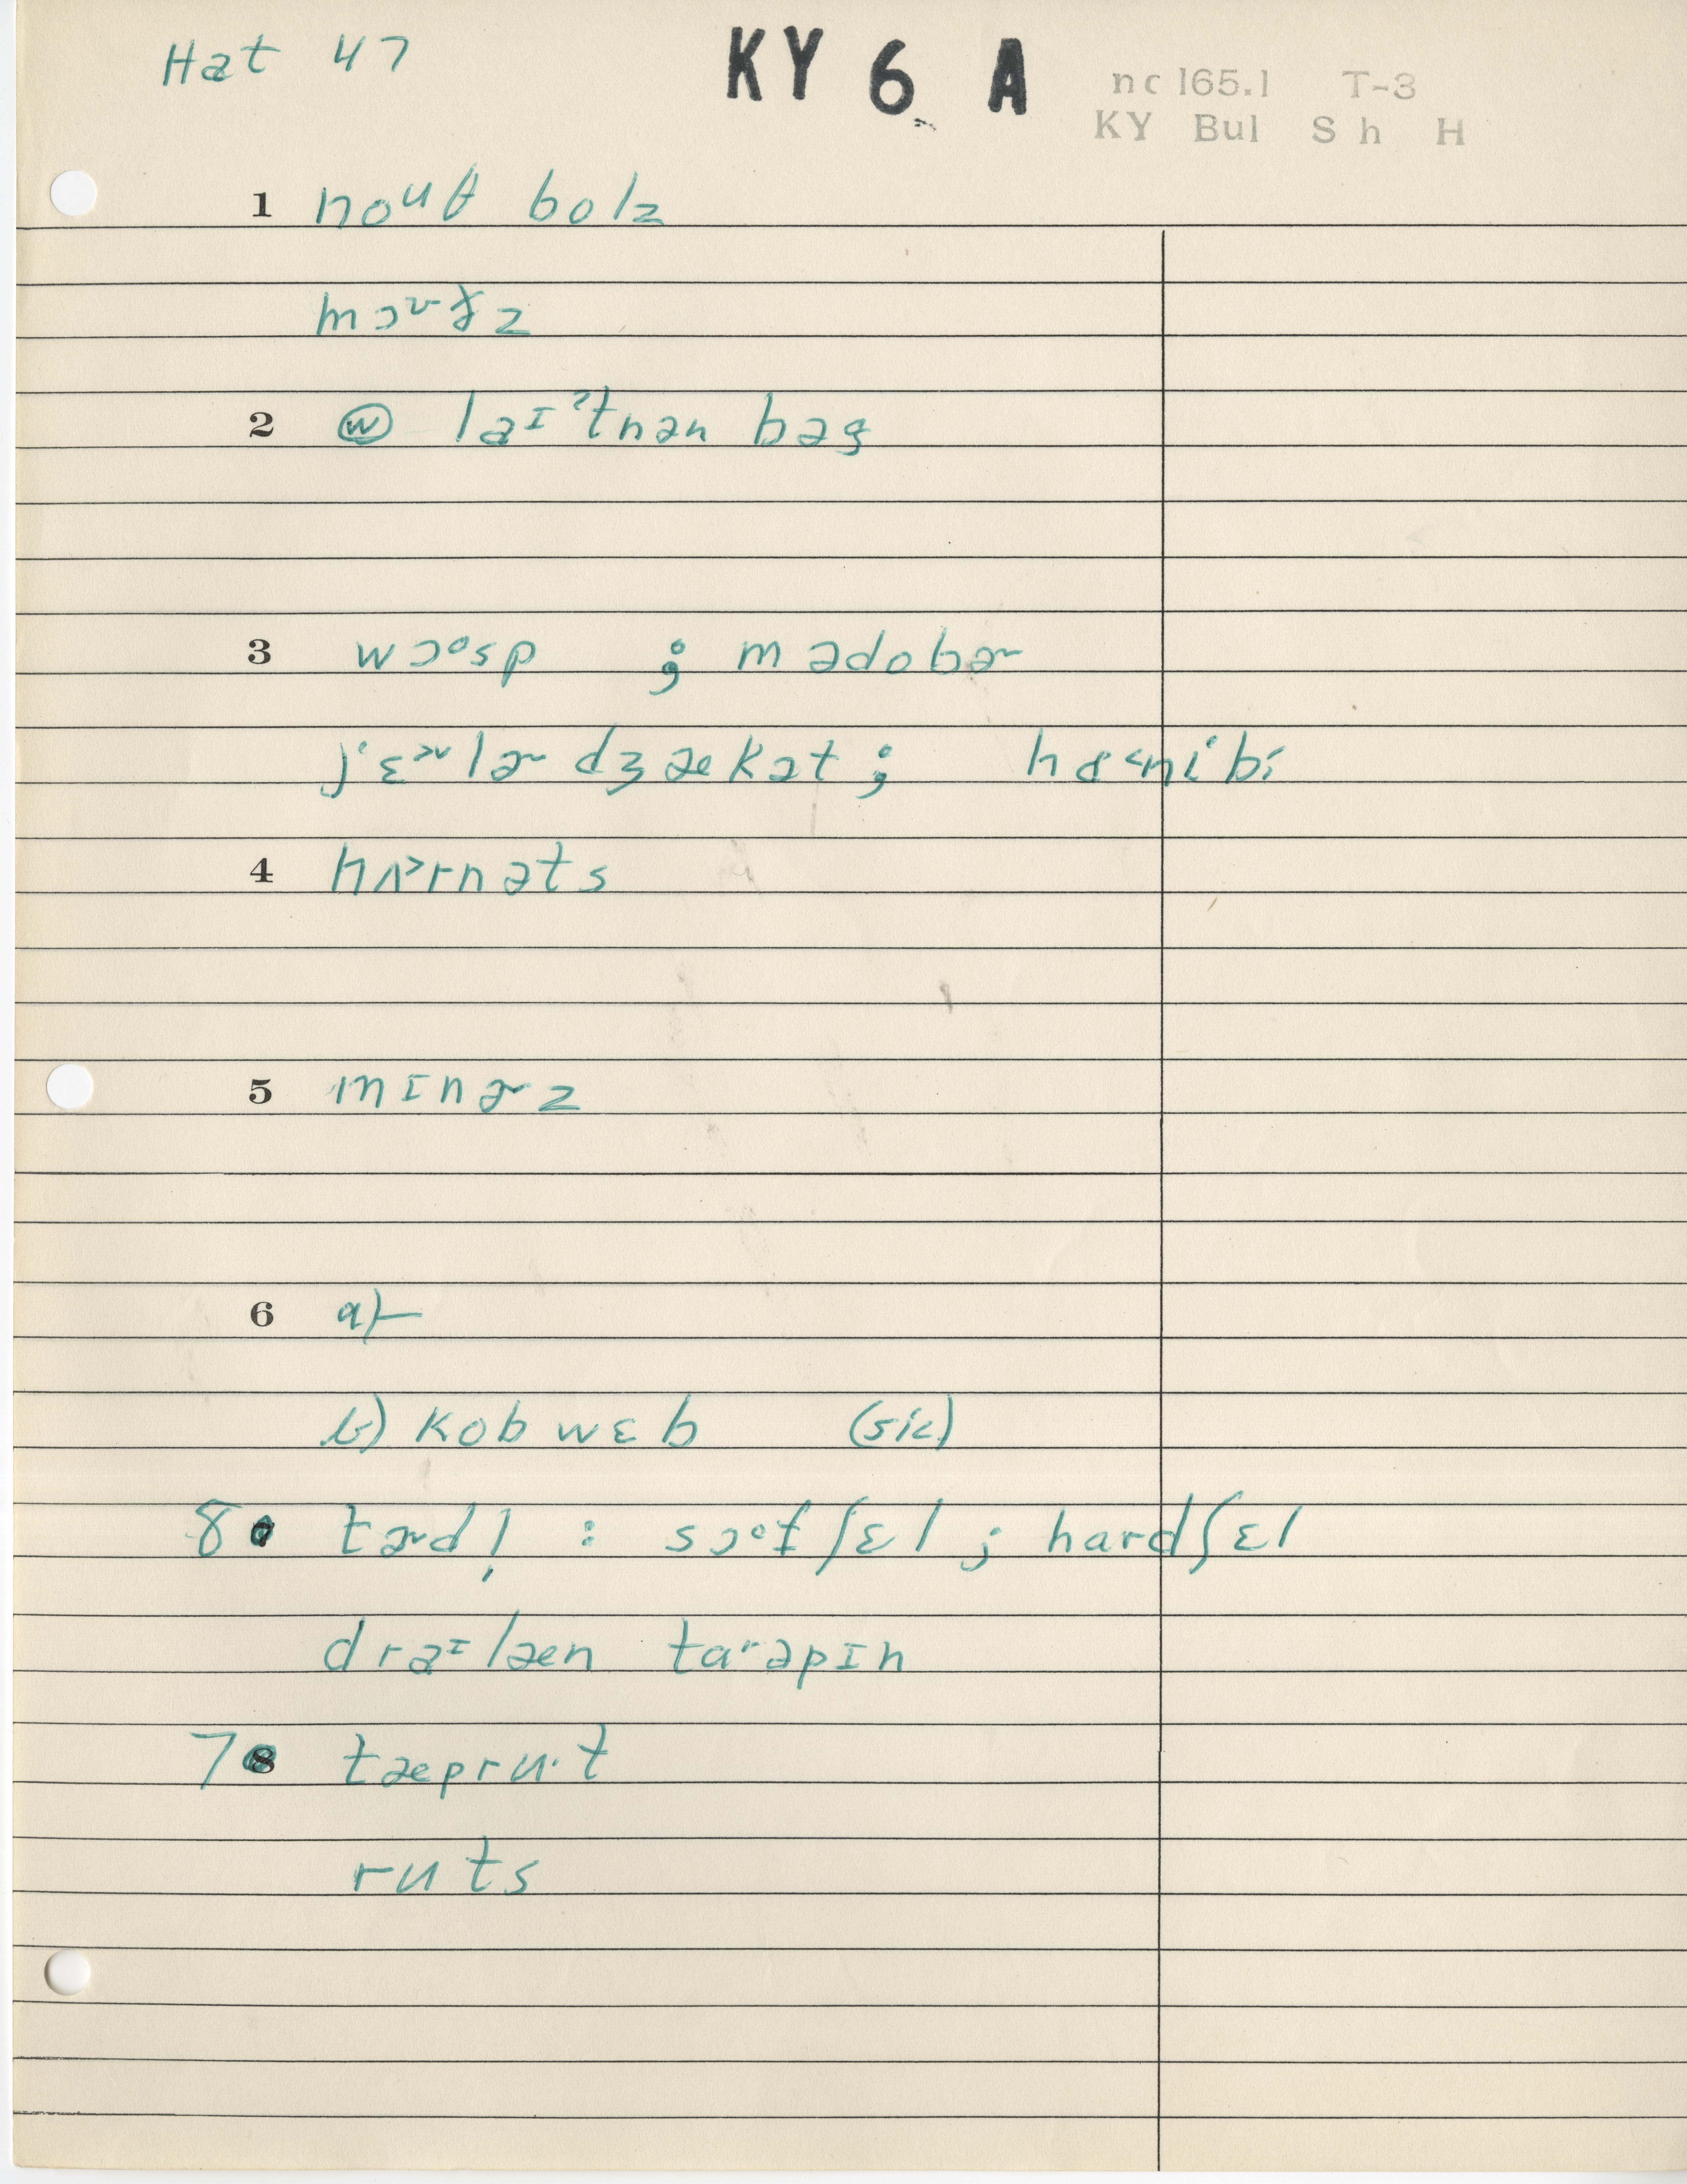 Hat 47
KY 6 A
nc 165.1 T-3
KY Bul Sh H
1 noᵘθ bolz
2 ⓦ laɪˀtnən bəg
3 wɔᵒsp ; mədobɚ
jɛɚlɚ dʒækət ;
4 hʌ˃rnəts
5 mɪnɚz
6 a) —
b) kobwɛb (sic)
8 tɚdl̩ : sɔᵒfʃɛl ; hardʃɛl
draɪlæn tarəpɪn
7 8 tæpru·t
ruts